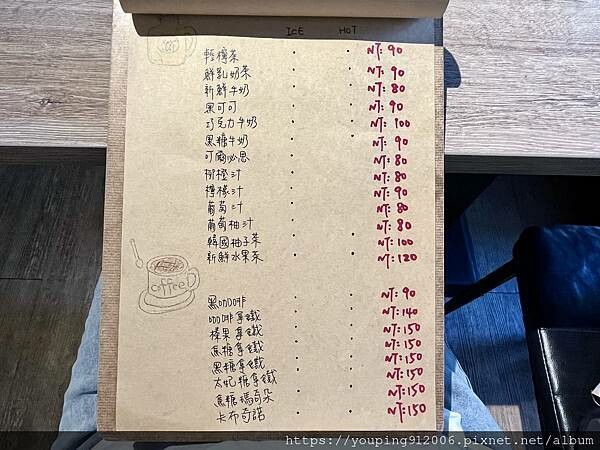 ICE HOT
輕檸茶 NT: 90
鮮乳奶茶 NT: 90
新鮮牛奶 NT: 80
黑可可 NT: 90
巧克力牛奶 NT: 100
黑糖牛奶 NT: 90
可爾必思 NT: 80
柳橙汁 NT: 80
檸檬汁 NT: 90
葡萄汁 NT: 80
葡萄柚汁 NT: 80
韓國柚子茶 NT: 100
新鮮水果茶 NT: 120
coffee
黑咖啡 NT: 90
咖啡拿鐵 NT: 140
榛果拿鐵 NT: 150
焦糖拿鐵 NT: 150
黑糖拿鐵 NT: 150
太妃糖拿鐵 NT: 150
焦糖瑪奇朵 NT: 150
卡布奇諾 NT: 150
https://youping912006.pixnet.net/album